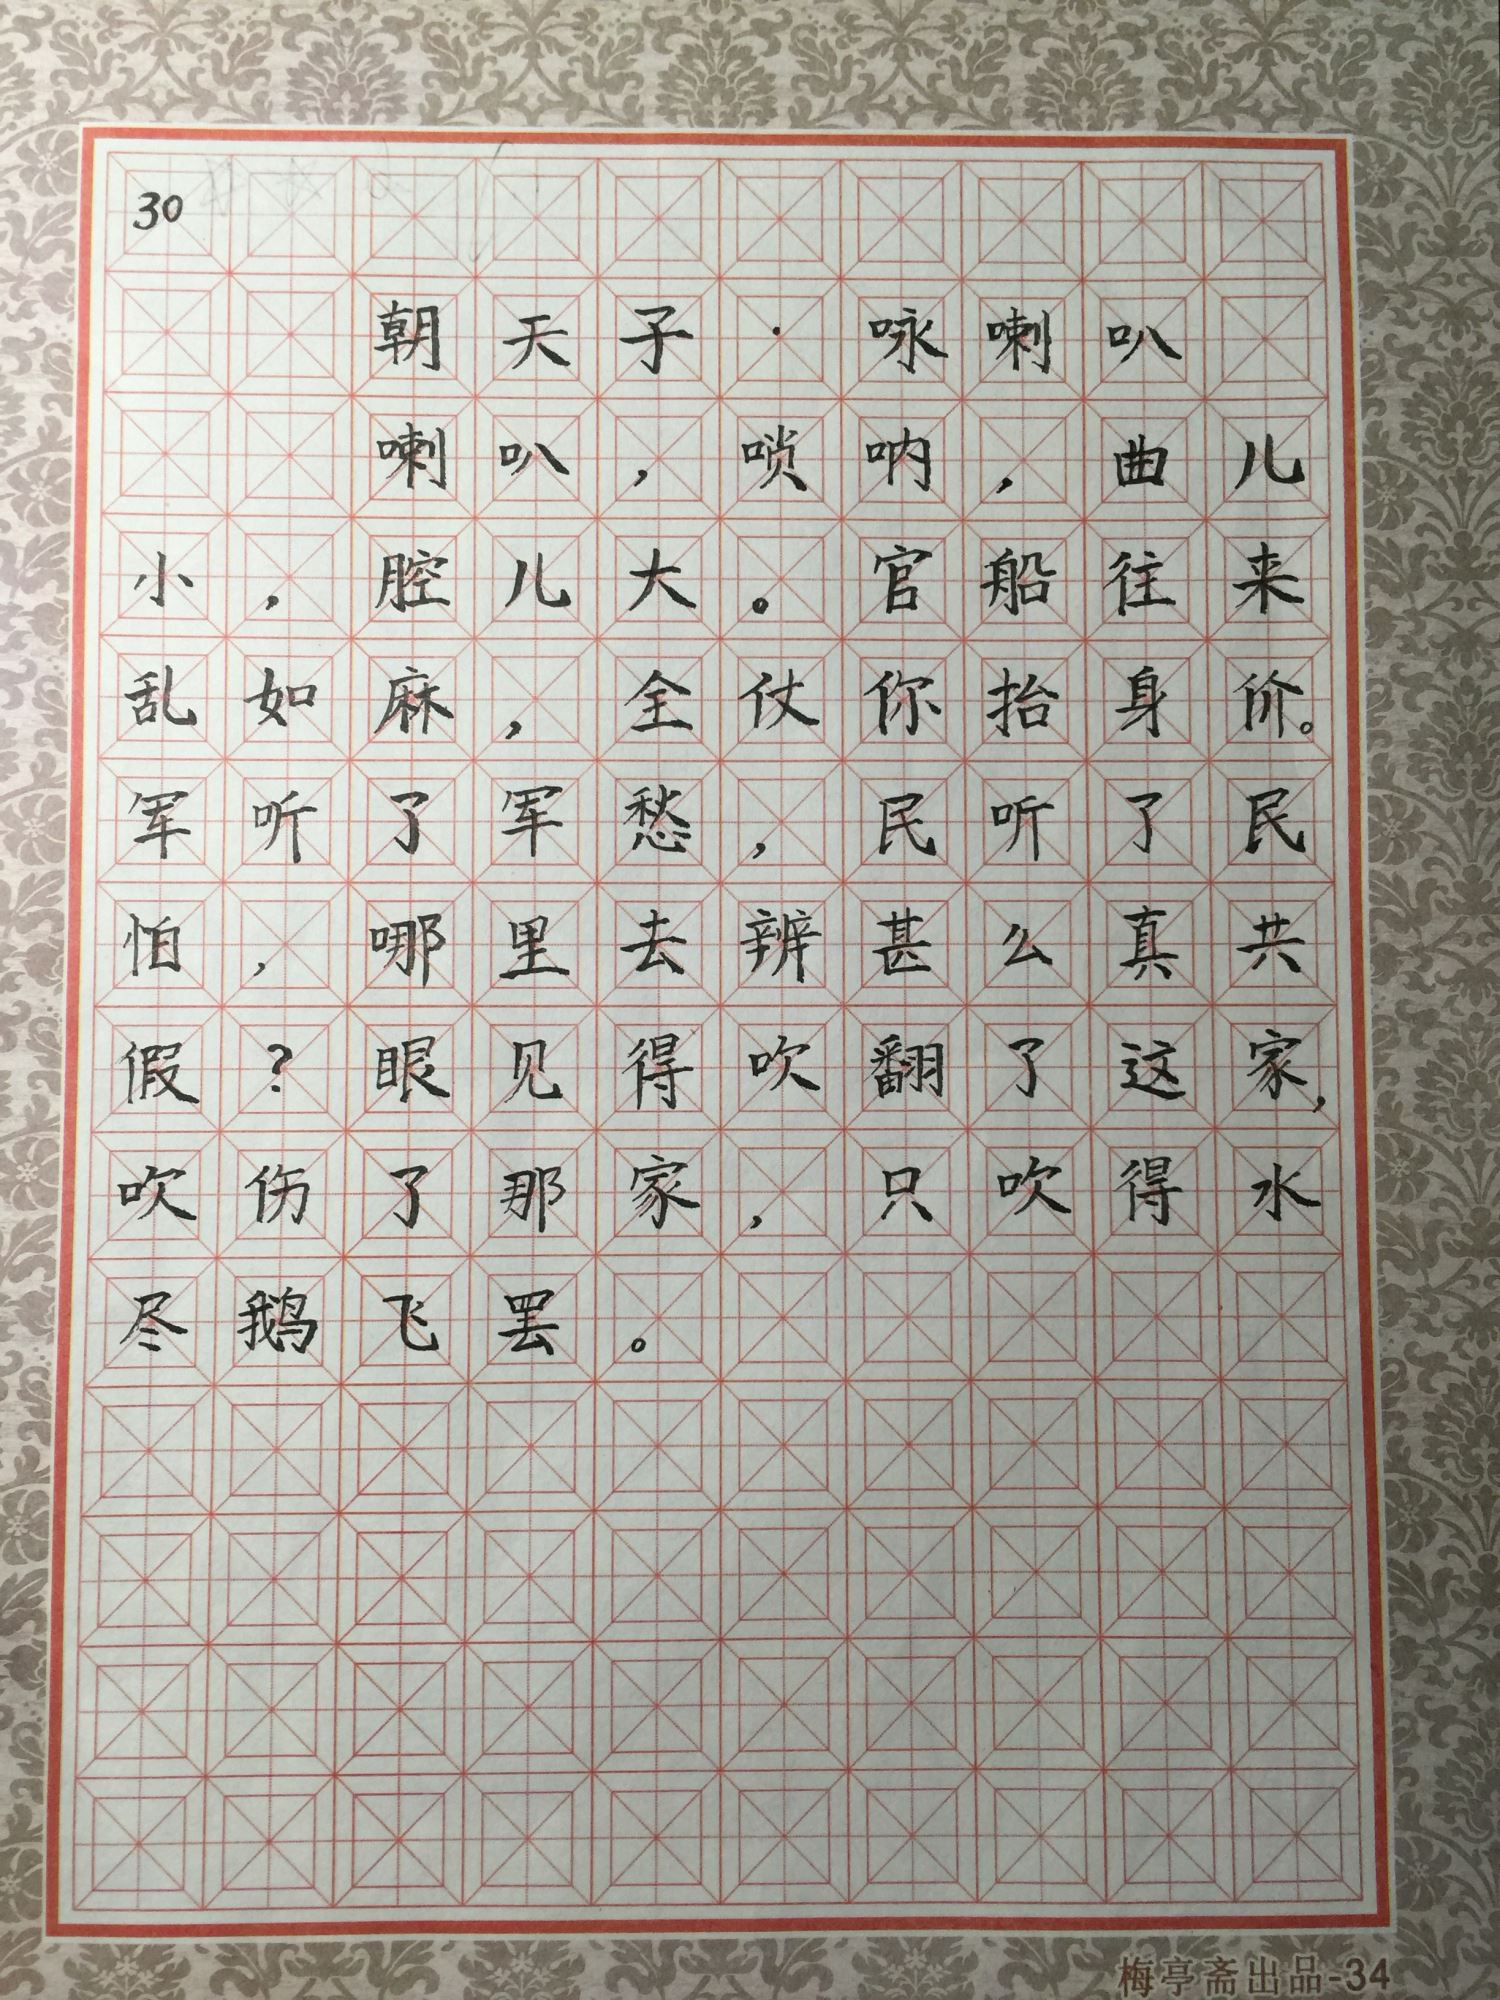 30
朝天子·咏喇叭
喇叭，唢呐，曲儿
小，腔儿大。官船往来
乱如麻，全仗你抬身价。
军听了军愁，民听了民
怕，哪里去辨甚么真共
假？眼见得吹翻了这家，
吹伤了那家，只吹得水
尽鹅飞罢。
梅亭斋出品-34